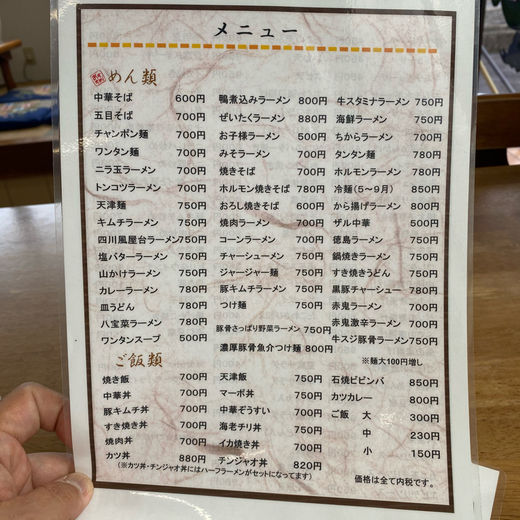 メニュー
めん類
中華そば 600円
五目そば 700円
チャンポン麺 700円
ワンタン麺 700円
ニラ玉ラーメン 700円
トンコツラーメン 700円
天津麺 750円
キムチラーメン 750円
四川風屋台ラーメン 750円
塩バターラーメン 750円
山かけラーメン 750円
カレーラーメン 780円
皿うどん 780円
八宝菜ラーメン 780円
ワンタンスープ 500円
鴨煮込みラーメン 800円
ぜいたくラーメン 880円
お子様ラーメン 500円
みそラーメン 700円
焼きそば 700円
ホルモン焼きそば 780円
おろし焼きそば 700円
焼肉ラーメン 700円
コーンラーメン 700円
チャーシューメン 750円
ジャージャー麺 750円
豚キムチラーメン 750円
つけ麺 750円
豚骨さっぱり野菜ラーメン 750円
濃厚豚骨魚介つけ麺 800円
牛スタミナラーメン 750円
海鮮ラーメン 750円
ちからラーメン 700円
タンタン麺 780円
ホルモンラーメン 780円
冷麺(5〜9月) 850円
から揚げラーメン 800円
ザル中華 500円
徳島ラーメン 750円
鍋焼きラーメン 750円
すき焼きうどん 750円
黒豚チャーシュー 780円
赤鬼ラーメン 700円
赤鬼激辛ラーメン 700円
牛スジ豚骨ラーメン 750円
※麺大100円増し
ご飯類
焼き飯 700円
中華丼 700円
豚キムチ丼 700円
すき焼き丼 700円
焼肉丼 700円
カツ丼 880円
天津飯 750円
マーボ丼 750円
中華ぞうすい 700円
海老チリ丼 750円
イカ焼き丼 700円
チンジャオ丼 820円
石焼ビビンバ 850円
カツカレー 800円
ご飯 大 300円
中 230円
小 150円
(※カツ丼・チンジャオ丼にはハーフラーメンがセットになってます)
価格は全て内税です。